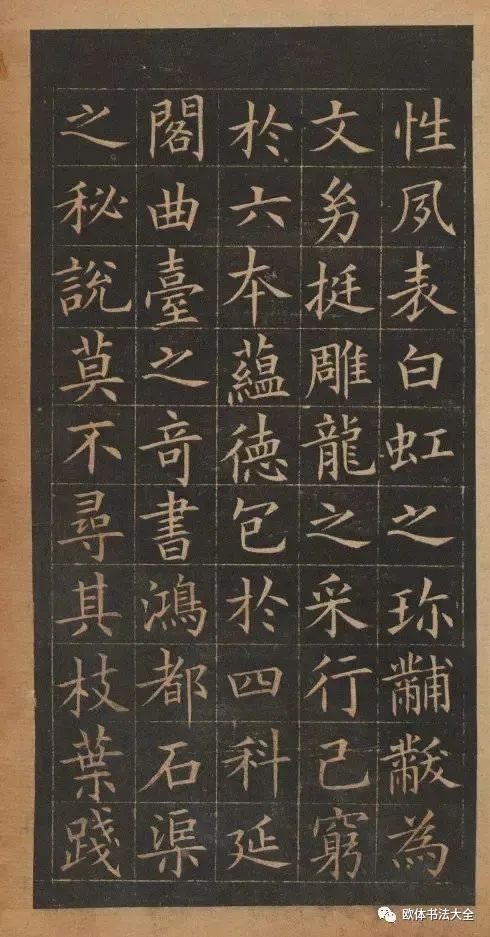 性夙表白虹之珎黼黻為
文㓜挺雕龍之采行己窮
於六本蘊德包於四科延
閣曲臺之竒書鴻都石渠
之秘說莫不尋其枝葉踐
欧体书法大全